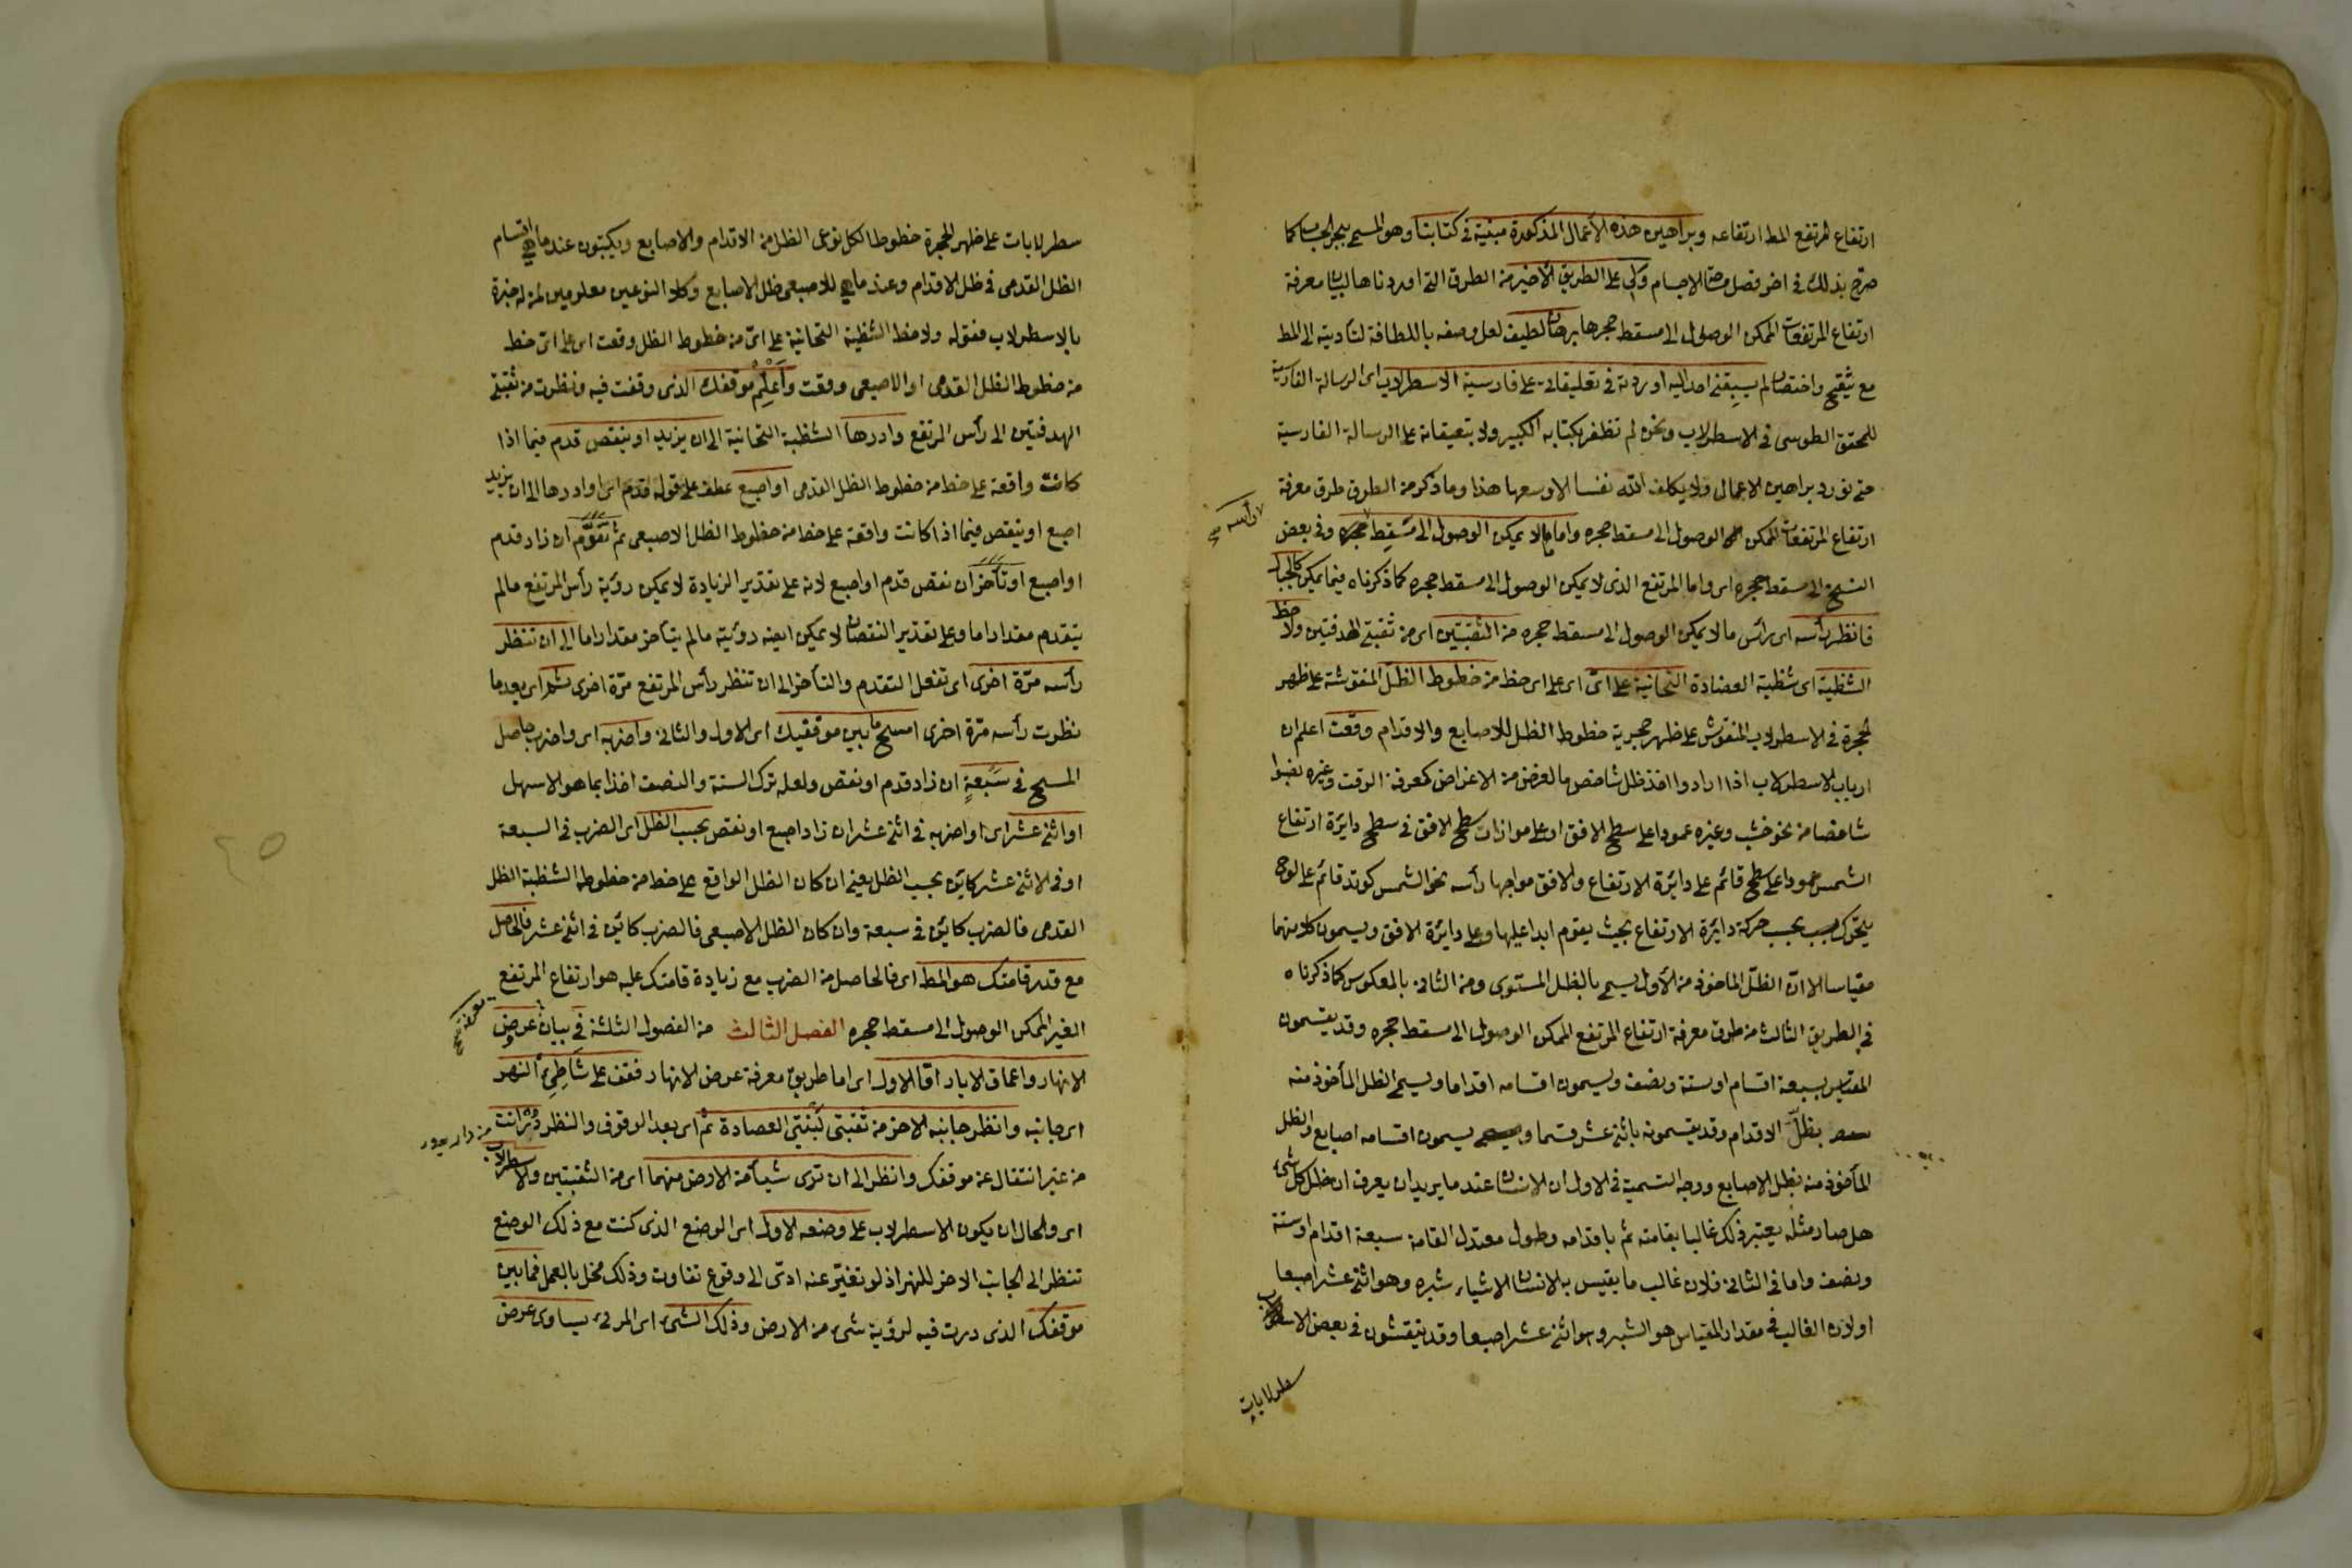 ارتفاع المرتفع المط ارتفاعه وبراهين هذه الأعمال المذكورة مبنية في كتابنا وهو المسمى ببحر الحساب كما
صرح بذلك في اخر فصل مساحة الاجسام ولي على الطريق الأخير من الطرق التي اوردناها لبيان معرفة
ارتفاع المرتفعات الممكن الوصول الى مسقط حجرها برهان لطيف لعل وصفه باللطافة لتأديته الى المط
مع واختصار لم يسبقني احد اليه اوردته في تعليقاتي على فارسية الاسطرلاب اى الرسالة الفارسية
للمحقق الطوسى في الاسطرلاب ونحن لم نظفر بكتابه الكبير ولا بتعيقاته على الرسالة الفارسية
حتى نورد براهين الاعمال ولا يكلف الله نفسا الا وسعها هذا وما ذكر من الطرق طرق معرفة
ارتفاع المرتفعات الممكن الوصول الى مسقط حجره واما ما لا يمكن الوصول الى مسقط حجره وفي بعض
لا رأسه صح
النسخ الى مسقط حجره اى واما المرتفع الذى لا يمكن الوصول الى مسقط حجره كما ذكرناه فيما يمكن كالجبال
فانظر رأسه اى رأس ما لا يمكن الوصول الى مسقط حجره من الثقبتين اى من ثقبتى الهدفتين ولاحظ
الشظية اى شظية العضادة التحتانية على اىّ اى على اى خط من خطوط الظلّ المنقوشة على ظهر
الحجرة في الاسطرلاب المنقوش على ظهر حجرته خطوط الظل للاصابع والاقدام وقعت اعلم ان
ارباب الاسطرلاب اذا ارادوا اخذ ظل شاخص ما لغرض من الاغراض كمعرفة الوقت وغيره نصبوا
شاخصا من نحو خشب وغيره عمودا على سطح الافق او على موازات سطح الافق في سطح دايرة ارتفاع
الشمس عمودا على سطح قائم على دايرة الارتفاع والافق مواجها رأسه نحو الشمس كوتد قائم على لوح
يتحرك بحسب حركة دايرة الارتفاع بحيث يقوم ابدا عليها وعلى دايرة الافق ويسمون كلا منهما
مقياسا الا انّ الظلّ الماخوذ من الأول يسمى بالظل المستوى ومن الثانى بالمعكوس كما ذكرناه
في الطريق الثالث من طرق معرفة ارتفاع المرتفع الممكن الوصول الى مسقط حجره وقد يقسمون
المقياس بسبعة اقسام او ستة ونصف ويسمون اقسامه اقداما ويسمى الظل المأخوذ منه
بظلّ الاقدام وقد يقسمونه باثنى عشر قسما ويسمون اقسامه اصابع والظل
المأخوذ منه بظل الاصابع ووجه التسمية في الاول ان الانسان عندما يريد ان يعرف ان ظل كل شئ
هل صار مثله يعتبر ذلك غالبا بقامته ثم باقدامه وطول معتدل القامة سبعة اقدام او ستة
ونصف واما في الثانى فلان غالب ما يقيس به الانسان الاشياء شبره وهو اثنى عشر اصبعا
اولان الغالب في مقدار المقياس هو الشبر وهو اثنى عشر اصبعا وقد ينقشون في بعض الاسطرلاب
سطرلابات
سطرلابات على ظهر الحجرة خطوطا لكل نوعى الظل من الاقدام والاصابع ويكتبون عند ما هي اقسام
الظل القدمى في ظل الاقدام وعند ما هي للاصبعى ظل الاصابع وكلا النوعين معلومين لمن له خبرة
بالاسطرلاب فقوله ولاحظ الشظية التحتانية على اىّ من خطوط الظل وقعت اى على اىّ خط
من خطوط الظل القدمى او الاصبعى وقعت وأعلِم موقفك الذى وقفت فيه ونظرت من ثقبتى
الهدفتين الى رأس المرتفع وادرها الشظية التحتانية الى ان يزيد او ينقص قدم فيما اذا
كانت واقعة على خط من خطوط الظل القدمى او اصبع عطف على قوله قدم اى او ادرها الى ان يزيد
اصبع او ينقص فيما اذا كانت واقعة على خط من خطوط الظل الاصبعى ثم تقدّم ان زاد قدم
او اصبع او تأخر ان نقص قدم او اصبع لانه على تقدير الزيادة لا يمكن رؤية رأس المرتفع مالم
يتقدم مقدارا ما وعلى تقدير النقصان لا يمكن ايضه رؤيته مالم يتأخر مقدارا ما الى ان تنظر
رأسه مرّة اخرى اى تفعل التقدم والتأخر الى ان تنظر رأس المرتفع مرّة اخرى ثم اى بعد ما
نظرت رأسه مرّة اخرى امسح ما بين موقفيك اى الاول والثانى واضربه اى واضرب حاصل
المسح في سبعةٍ ان زاد قدم او نقص ولعله ترك الستة والنصف اخذا بما هو الاسهل
او اثنى عشر اى او اضربه في اثنى عشر ان زاد اصبع او نقص بحسب الظل اى الضرب في السبعة
او في الاثنى عشر كائن بحسب الظل يعنى ان كان الظل الواقع على خط من خطوطه الشظية الظل
القدمى فالضرب كائن في سبعة وان كان الظل الاصبعى فالضرب كائن في اثنى عشر فالحاصل
مع قدر قامتك هو المط اى فالحاصل من الضرب مع زيادة قامتك عليه هو ارتفاع المرتفع
الغير الممكن الوصول الى مسقط حجره الفصل الثالث من الفصول الثلثة في بيان عروض
معرفة صح
الانهار واعماق الابار امّا الاول اى اما طريق معرفة عرض الانهار فقف على شاطئ النهر
اى جانبه وانظر جانبه الاخر من ثقبتى لبنتى العضادة ثم اى بعد الوقوف والنظر دُر انت
من دار يدور
من غير انتقال عن موقفك وانظر الى ان ترى شيأ من الارض منهما اى من الثقبتين والاسطرلاب
اى والحال ان يكون الاسطرلاب على وضعه الاول اى الوضع الذى كنت مع ذلك الوضع
تنظر الى الجانب الاخر للنهر اذ لو تغيّر عنه ادّى الى وقوع تفاوت وذلك مخل بالعمل فما بين
موقفك الذى درت فيه لرؤية شئ من الارض وذلك الشئ اى المرئى يساوى عرض
٤٥